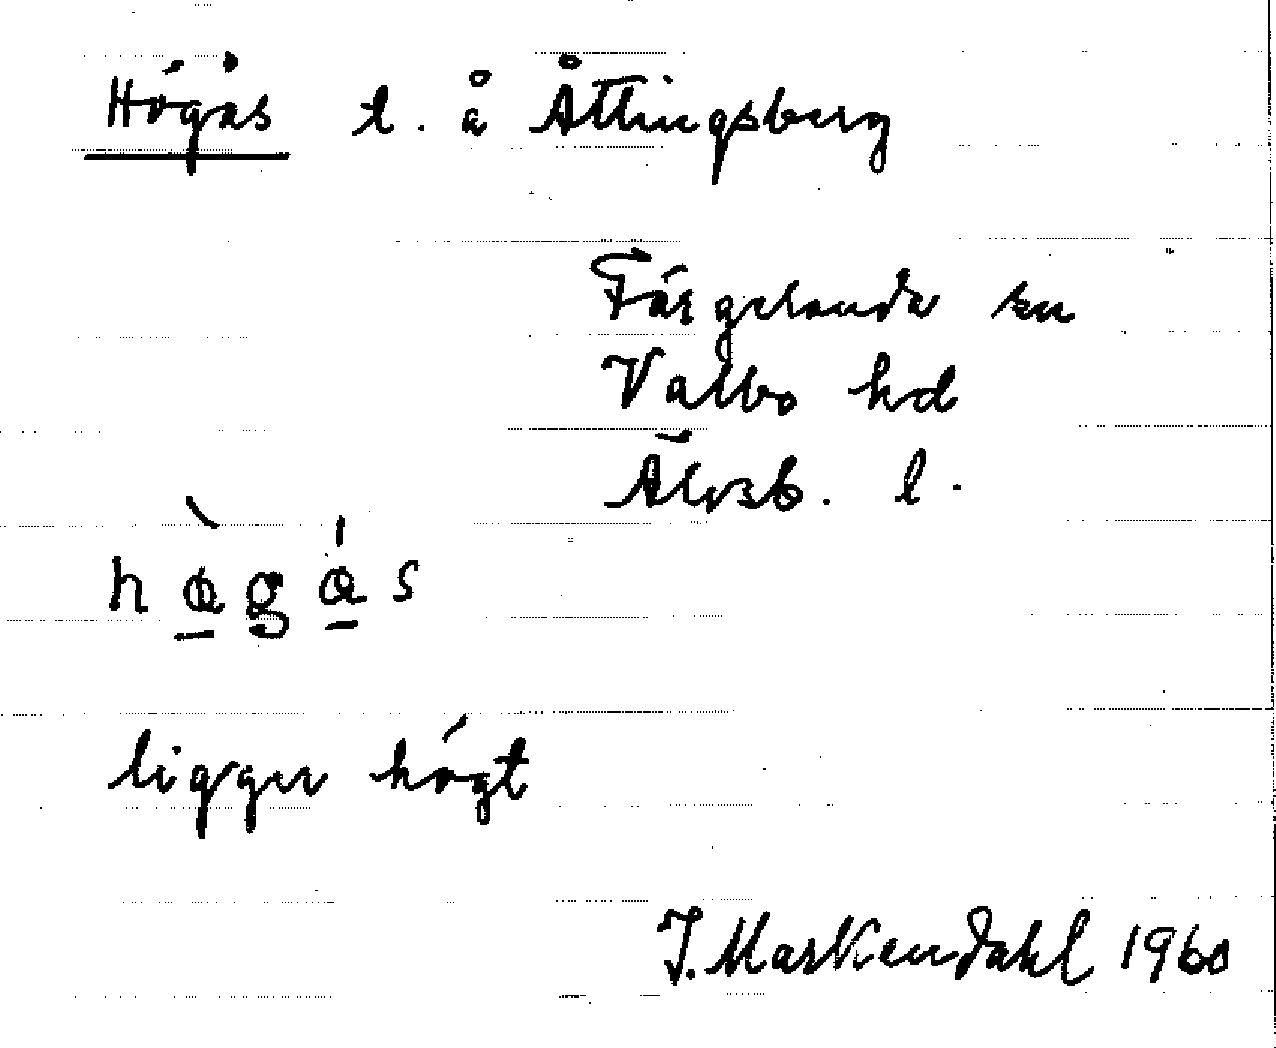 Högås t. å Åttingsberg
Färgelanda sn
Valbo hd
Älvsb. l.
ligger högt
J. Markendahl 1960